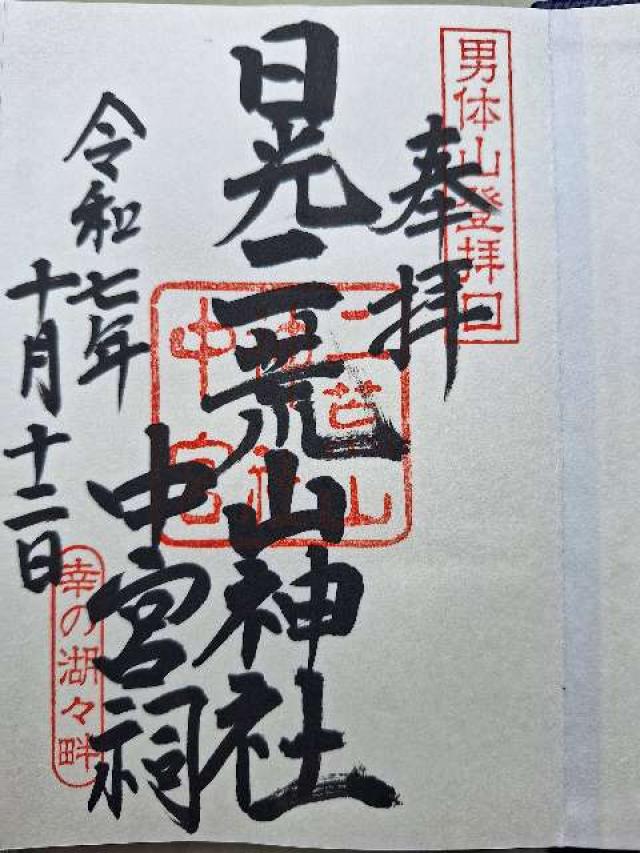 男体山登拝口
奉拝
日光二荒山神社
中宮祠
令和七年
十月十二日
幸の湖々畔